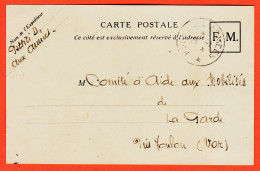 CARTE POSTALE
Ce côté est exclusivement réservé à l'adresse
F. M.
Nom de l'Expéditeur
aux Armées
M Comité d'Aide aux Mobilisés
de
La Garde
Près Toulon (Var)